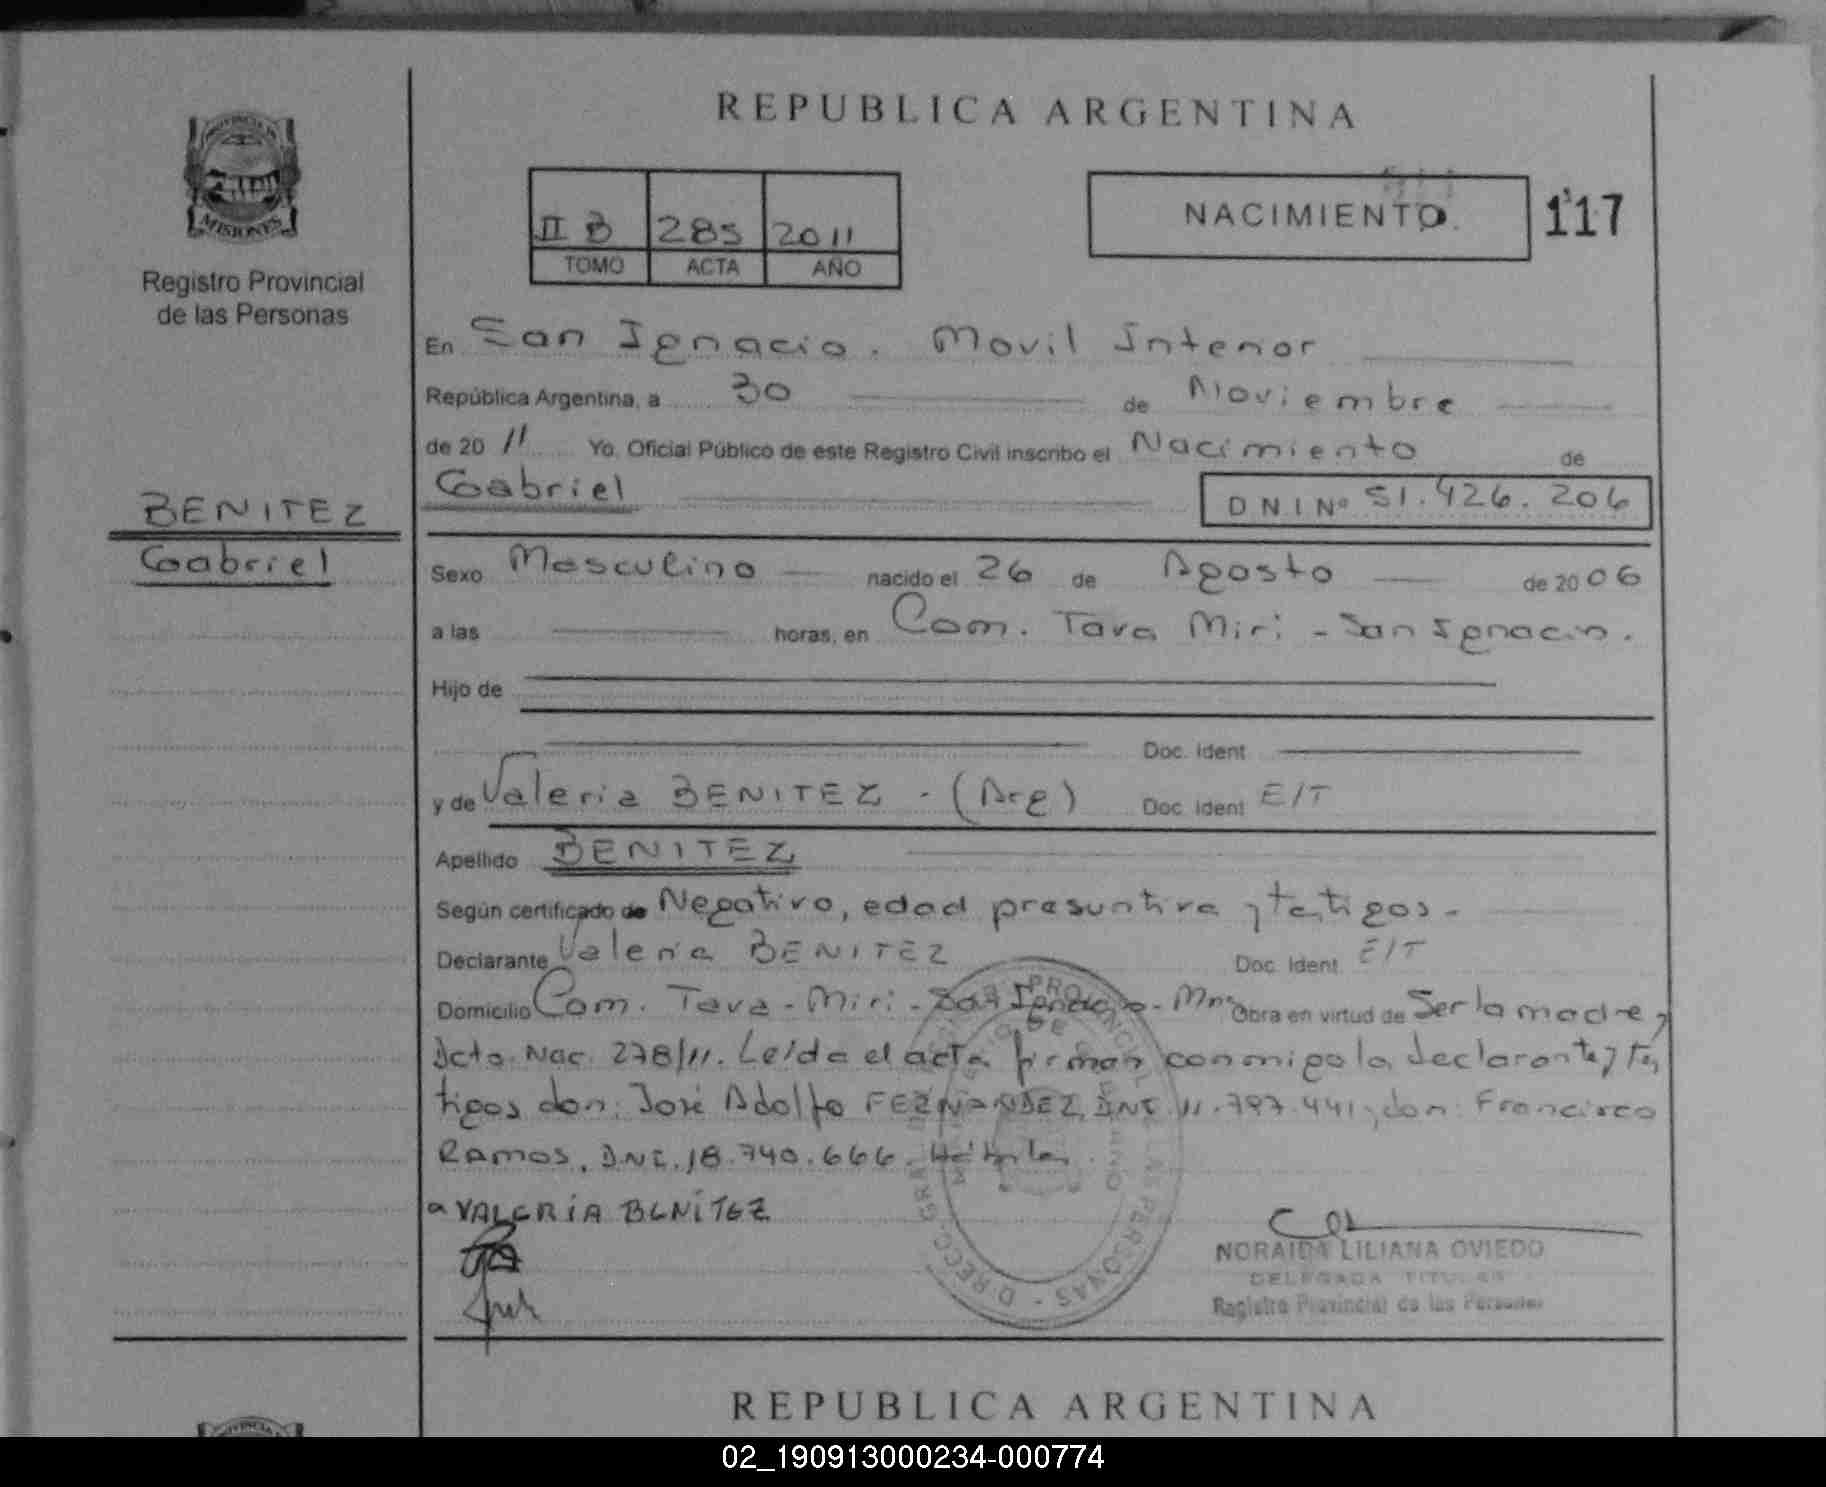 REPUBLICA ARGENTINA
PROVINCIA DE
MISIONES
Registro Provincial
de las Personas
II B 285 2011
TOMO ACTA AÑO
NACIMIENTO. 117
En San Ignacio. Movil Interior
República Argentina, a 30 de Noviembre
de 20 11 Yo, Oficial Público de este Registro Civil inscribo el Nacimiento de
Gabriel DNI Nº 51.426.206
BENITEZ
Gabriel
Sexo Masculino nacido el 26 de Agosto de 20 06
a las horas, en Com. Tava Miri - San Ignacio.
Hijo de
Doc. Ident
y de Valeria BENITEZ - (Arg) Doc. Ident E/T
Apellido BENITEZ
Según certificado de Negativo, edad presuntiva y testigos -
Declarante Valeria BENITEZ Doc. Ident. E/T
Domicilio Com. Tava - Miri - San Ignacio - Mnes Obra en virtud de Ser la madre y
Acta Nac. 278/11. Leída el acta firman conmigo la declarante y tes
tigos don: José Adolfo FERNANDEZ, DNI. 11.797.441, don: Francisco
Ramos, DNI. 18.740.666. Hábiles.
VALERIA BENÍTEZ
NORAIDA LILIANA OVIEDO
DELEGADA TITULAR
Registro Provincial de las Personas
REPUBLICA ARGENTINA
02_190913000234-000774